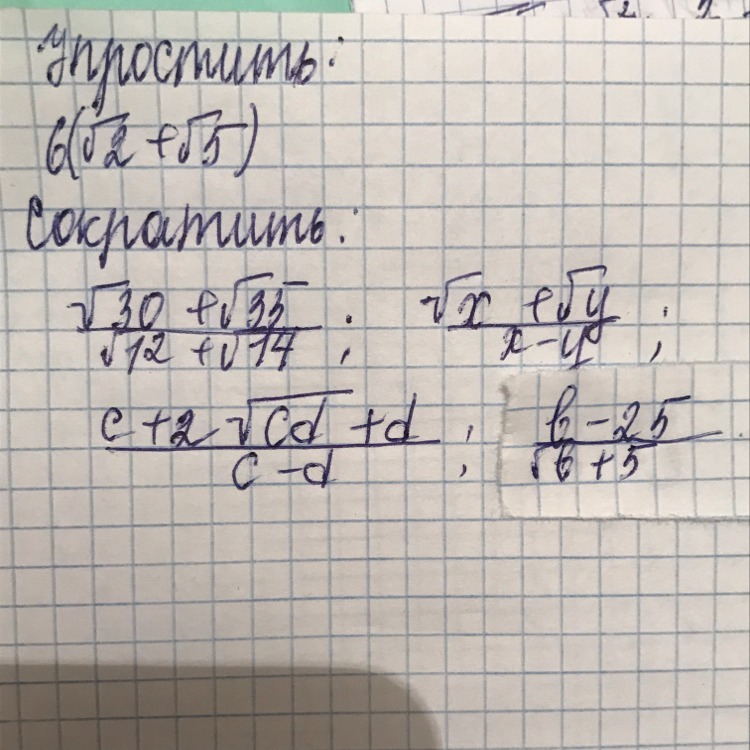 Упростить:
6(√2 + √5)
Сократить:
√30 + √35 / √12 + √14 ; √x + √y / x - y ;
c + 2√cd + d / c - d ; b - 25 / √b + 5